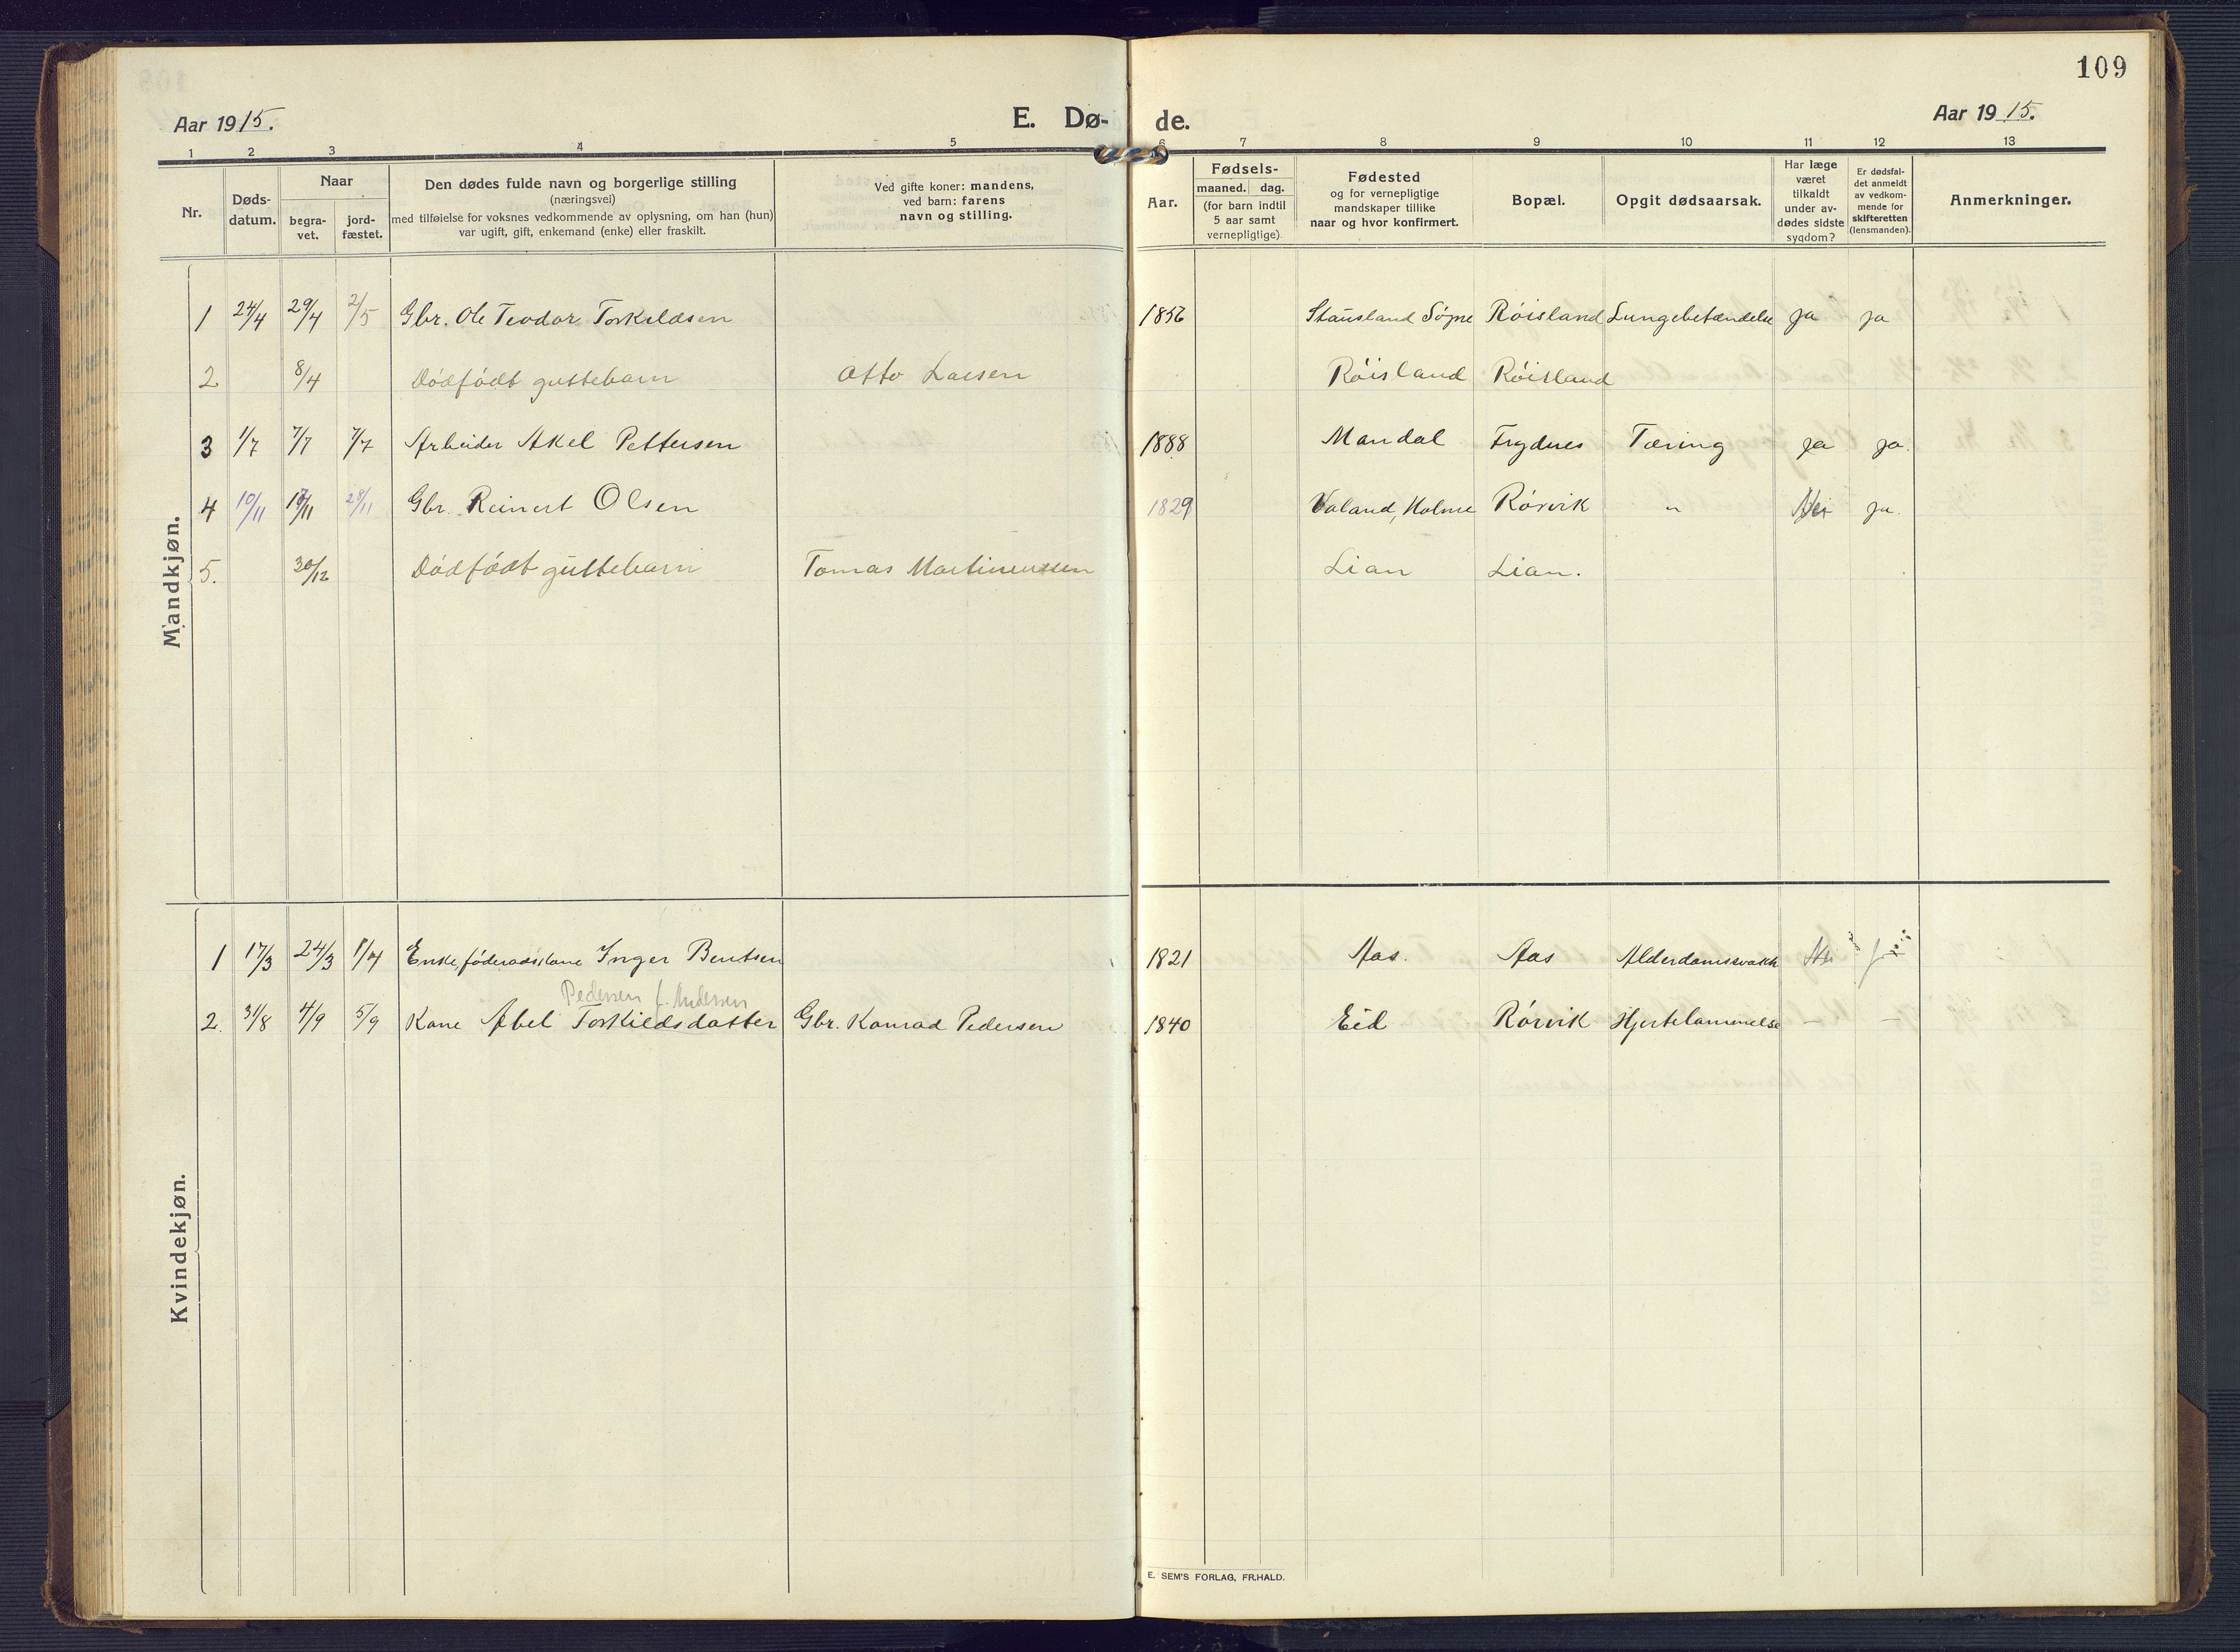 109
Aar 1915. E. Dø- de. Aar 1915.
1 2 3 4 5 6 7 8 9 10 11 12 13
Nr.
Døds-
datum.
Naar
begra-
vet.
jord-
fæstet.
Den dødes fulde navn og borgerlige stilling
(næringsvei)
med tilføielse for voksnes vedkommende av oplysning, om han (hun)
var ugift, gift, enkemand (enke) eller fraskilt.
Ved gifte koner: mandens,
ved barn: farens
navn og stilling.
Aar.
Fødsels-
maaned. dag.
(for barn indtil
5 aar samt
vernepligtige).
Fødested
og for vernepligtige
mandskaper tillike
naar og hvor konfirmert.
Bopæl.
Opgit dødsaarsak.
Har læge
været
tilkaldt
under av-
dødes sidste
sygdom?
Er dødsfal-
det anmeldt
av vedkom-
mende for
skifteretten
(lensmanden).
Anmerkninger.
Mandkjøn.
1 24/4 29/4 2/5 Gbr. Ole Teodor Torkildsen 1856 Stausland Søgne Røisland Lungebetændelse ja ja
2 8/4 Dødfødt guttebarn Otto Larsen Røisland Røisland
3 1/7 7/7 7/7 Arbeider Aksel Pettersen 1888 Mandal Frydnes Tæring ja ja.
4 10/11 17/11 28/11 Gbr. Reinert Olsen 1829 Valand, Holme Rørvik " Nei ja.
5. 30/12 Dødfødt guttebarn Tomas Martinussen Lian Lian.
Kvindekjøn.
1 17/3 24/3 1/4 Enke, føderadskone Inger Bentsen 1821 Aas. Aas Alderdomssvakh Nei
Pedersen f. Andersen
2. 31/8 4/9 5/9 Kone Abel Torkildsdatter Gbr. Konrad Pedersen 1840 Eid Rørvik Hjertelammelse — —
E. SEM'S FORLAG, FR.HALD.